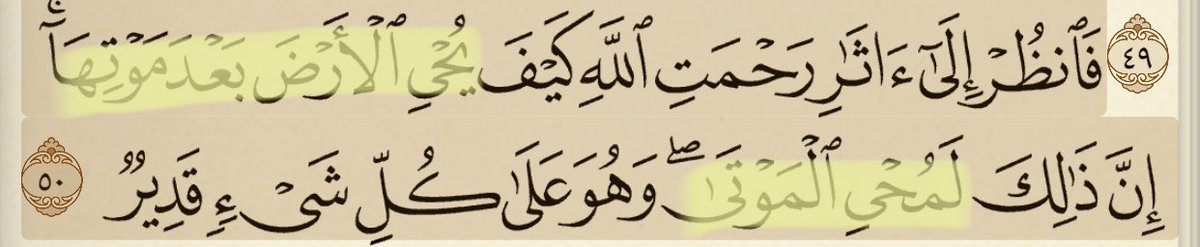 ٤٩ فَٱنظُرۡ إِلَىٰٓ ءَاثَٰرِ رَحۡمَتِ ٱللَّهِ كَيۡفَ يُحۡيِ ٱلۡأَرۡضَ بَعۡدَ مَوۡتِهَآۚ
إِنَّ ذَٰلِكَ لَمُحۡيِ ٱلۡمَوۡتَىٰۖ وَهُوَ عَلَىٰ كُلِّ شَيۡءٖ قَدِيرٞ ٥٠